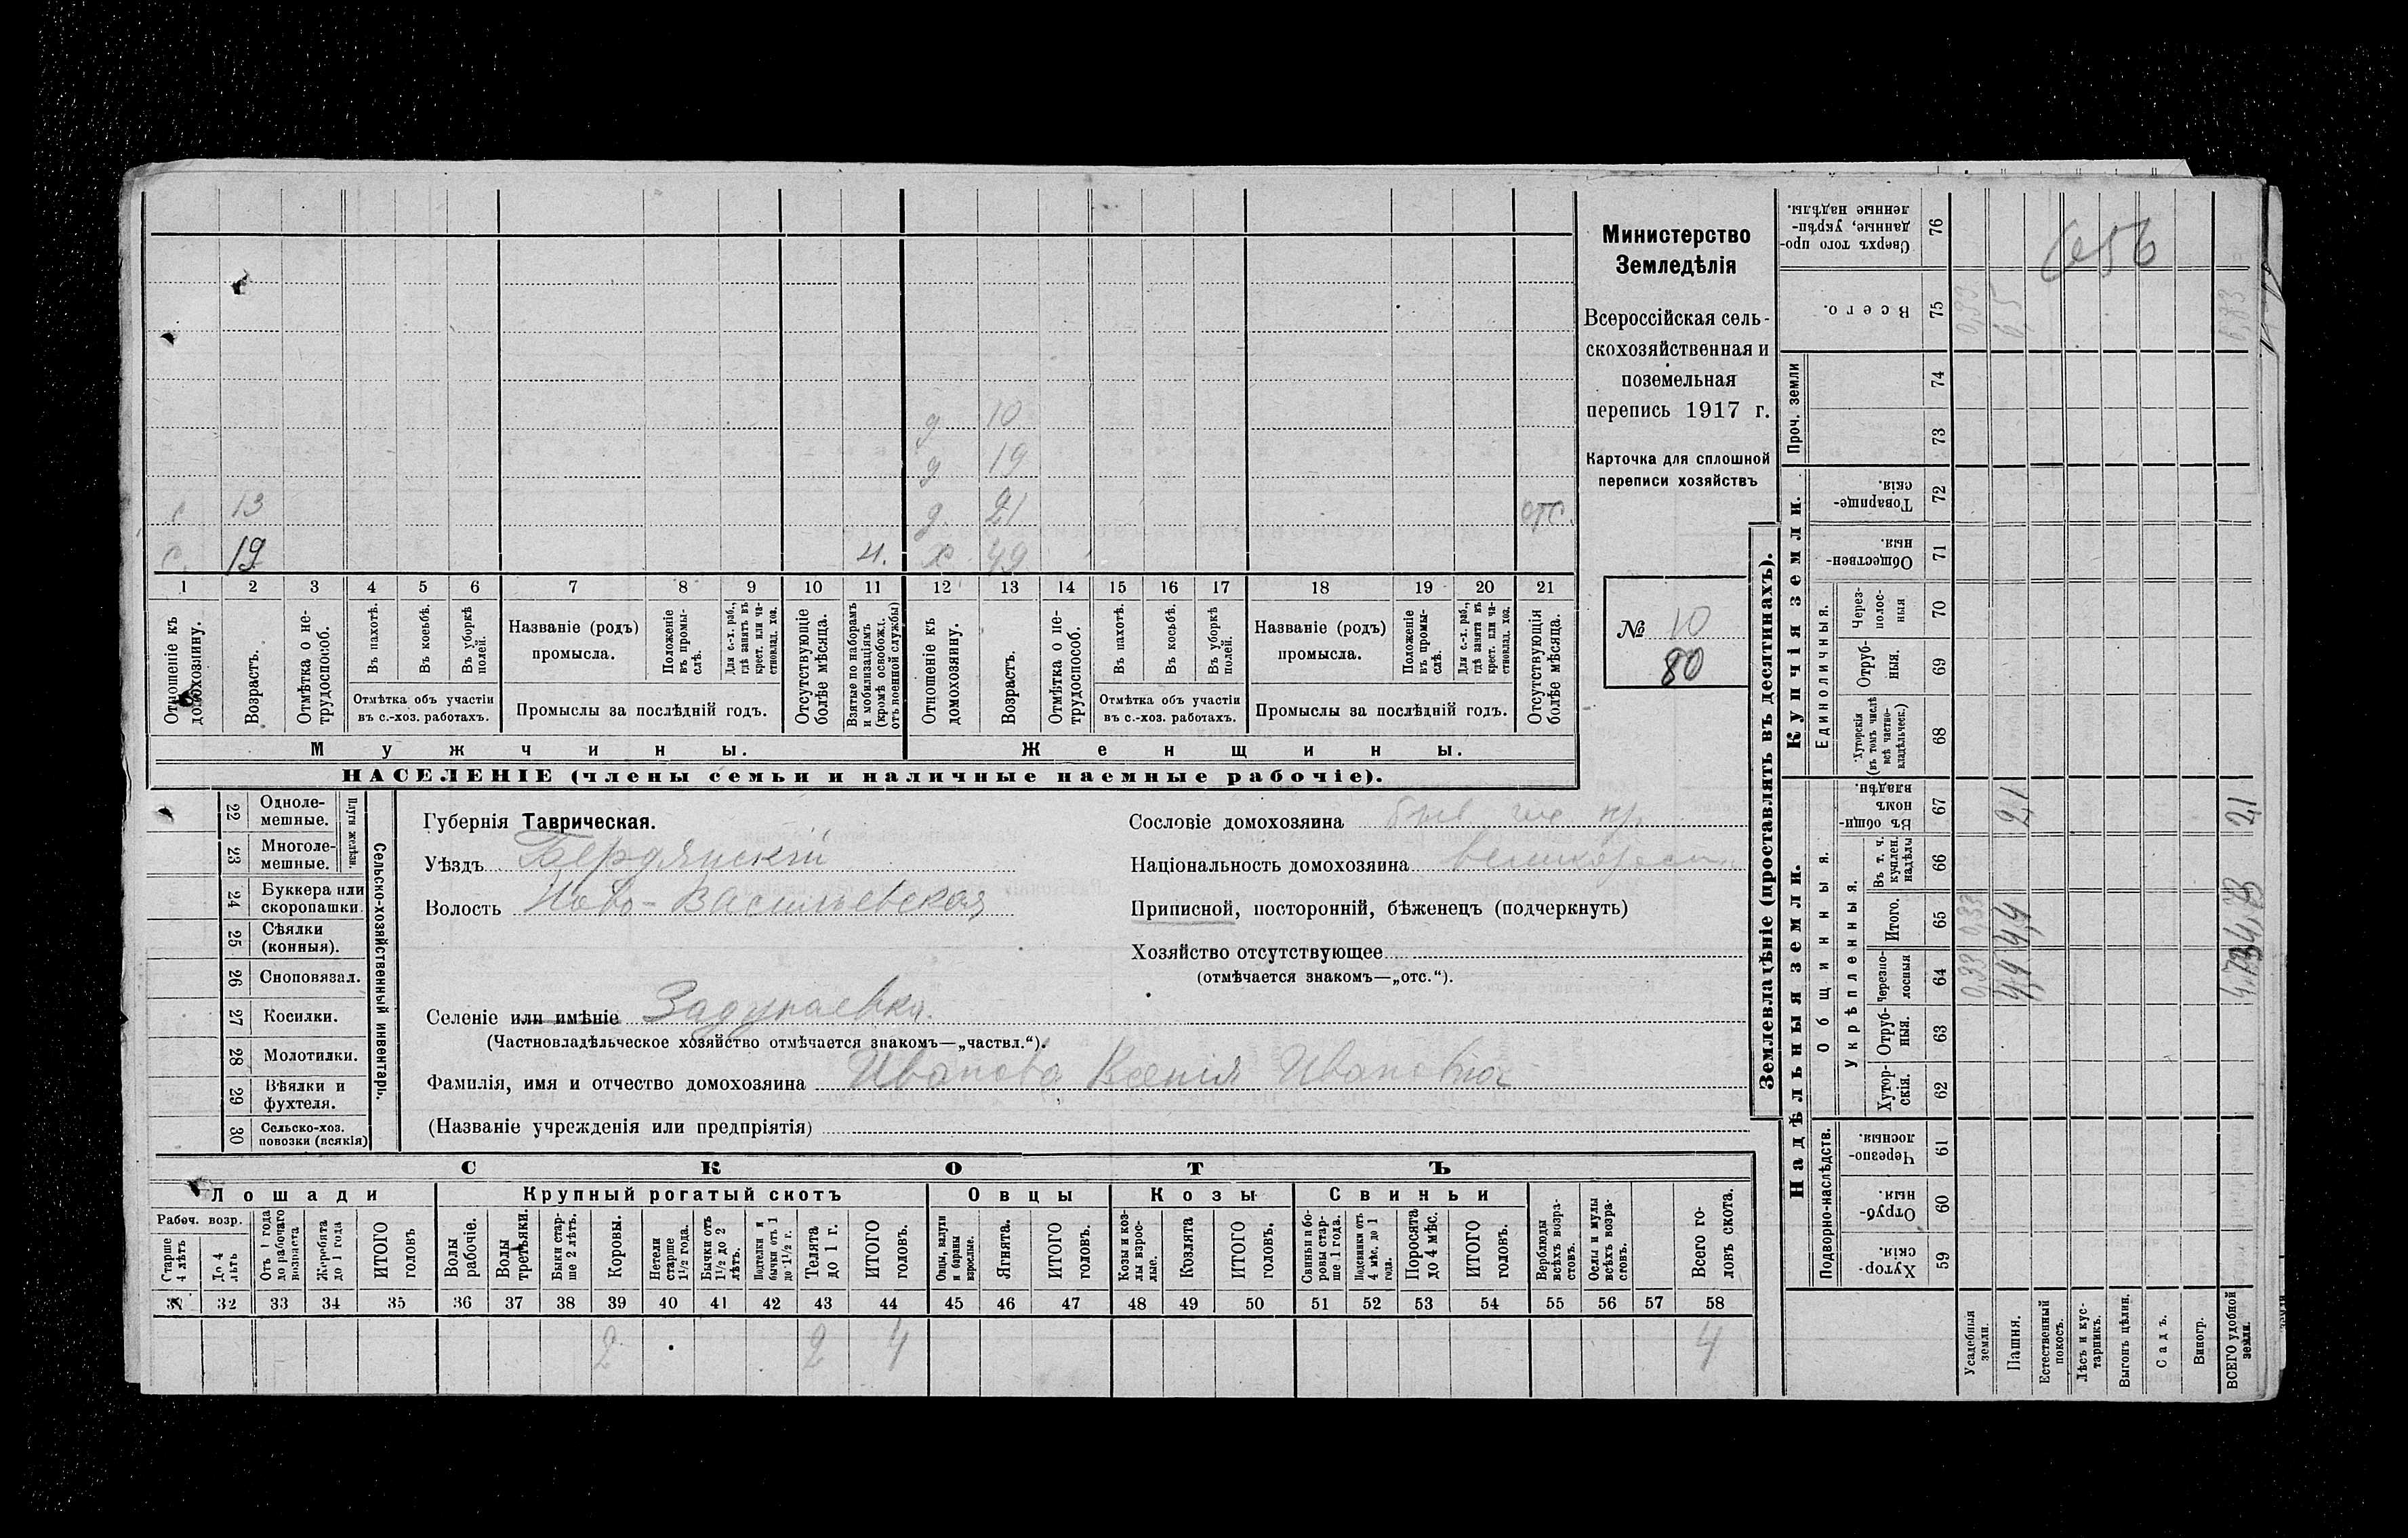 Министерство
Земледѣлія
Всероссійская сель-
скохозяйственная и
поземельная
перепись 1917 г.
Карточка для сплошной
переписи хозяйствъ
№ 10
80
д 10
д 19
с 13 д. 21 отс.
с. 19 ч. х 49
1 2 3 4 5 6 7 8 9 10 11 12 13 14 15 16 17 18 19 20 21
Отношеніе къ
домохозяину.
Возрастъ.
Отмѣтка о не-
трудоспособ.
Въ пахотѣ.
Въ косьбѣ.
Въ уборкѣ
полей.
Отмѣтка объ участіи
въ с.-хоз. работахъ.
Названіе (родъ)
промысла.
Положеніе
въ промы-
слѣ.
Для с.-х. раб.,
гдѣ занятъ въ
крест. или ча-
стновлад. хоз.
Промыслы за послѣдній годъ.
Отсутствующіе
болѣе мѣсяца.
Взятые по наборамъ
и мобилизаціямъ
(кромѣ освобожд.
отъ военной службы)
Отношеніе къ
домохозяину.
Возрастъ.
Отмѣтка о не-
трудоспособ.
Въ пахотѣ.
Въ косьбѣ.
Въ уборкѣ
полей.
Отмѣтка объ участіи
въ с.-хоз. работахъ.
Названіе (родъ)
промысла.
Положеніе
въ промы-
слѣ.
Для с.-х. раб.,
гдѣ занята въ
крест. или ча-
стновлад. хоз.
Промыслы за послѣдній годъ.
Отсутствующія
болѣе мѣсяца.
Мужчины. Женщины.
НАСЕЛЕНІЕ (члены семьи и наличные наемные рабочіе).
22 Одноле-
мешные.
23 Многоле-
мешные.
Плуги желѣзн.
24 Буккера или
скоропашки
25 Сѣялки
(конныя).
26 Сноповязал.
27 Косилки.
28 Молотилки.
29 Вѣялки и
фухтеля.
30 Сельско-хоз.
повозки (всякія)
Сельско-хозяйственный инвентарь.
Губернія Таврическая.
Уѣздъ Бердянскій
Волость Ново-Васильевская
Сословіе домохозяина быв. гос кр.
Національность домохозяина великоросс
Приписной, посторонній, бѣженецъ (подчеркнуть)
Хозяйство отсутствующее
(отмѣчается знакомъ—„отс.“).
Селеніе или имѣніе Задунаевка.
(Частновладѣльческое хозяйство отмѣчается знакомъ—„частвл.“).
Фамилія, имя и отчество домохозяина Иванова Ксенія Ивановна
(Названіе учрежденія или предпріятія)
СКОТЪ
Лошади Крупный рогатый скотъ Овцы Козы Свиньи
Рабоч. возр.
Старше
4 лѣтъ
До 4
лѣтъ
Отъ 1 года
до рабочаго
возраста
Жеребята
до 1 года
ИТОГО
головъ
Волы
рабочіе.
Волы
третьяки.
Быки стар-
ше 2 лѣтъ.
Коровы.
Нетели
старше
1½ года.
Бычки отъ
1½ до 2
лѣтъ.
Подтелки и
бычки отъ 1
до 1½ г.
Телята
до 1 г.
ИТОГО
головъ.
Овцы, валухи
и бараны
взрослые.
Ягнята.
ИТОГО
головъ.
Козы и коз-
лы взрос-
лые.
Козлята
ИТОГО
головъ.
Свиньи и бо-
ровы стар-
ше 1 года.
Подсвинки отъ
4 мѣс. до 1
года.
Поросята
до 4 мѣс.
ИТОГО
головъ.
Верблюды
всѣхъ возра-
стовъ.
Ослы и мулы
всѣхъ возра-
стовъ.
Всего го-
ловъ скота.
31 32 33 34 35 36 37 38 39 40 41 42 43 44 45 46 47 48 49 50 51 52 53 54 55 56 57 58
2 2 4 4
Землевладѣніе (проставлять въ десятинахъ).
Надѣльныя земли. Купчія земли. Проч. земли
Подворно-наслѣдств. Общинныя. Укрѣпленныя. Единоличныя.
Хутор-
скія. 59
Отруб-
ныя. 60
Черезпо-
лосныя. 61
Хутор-
скія. 62
Отруб-
ныя. 63
Черезпо-
лосныя 64
Итого. 65
Въ т. ч.
куплен.
надѣлы 66
Въ общин-
номъ
владѣн. 67
Хуторскія
(въ томъ числѣ
всѣ частно-
владѣльческ.) 68
Отруб-
ныя. 69
Через-
полос-
ныя 70
Обществен-
ныя. 71
Товарище-
скія. 72
73
74
Всего. 75
Сверхъ того про-
данные, укрѣп-
ленные надѣлы. 76
Усадебныя
земли. 0,33 0,33 0,33
Пашня. 4,4 4,4 2,1 6,5
Естественный
покосъ.
Лѣсъ и кус-
тарникъ.
Выгонъ цѣлин.
Садъ.
Виногр.
ВСЕГО удобной
земли. 4,73 4,73 2,1 6,83
656